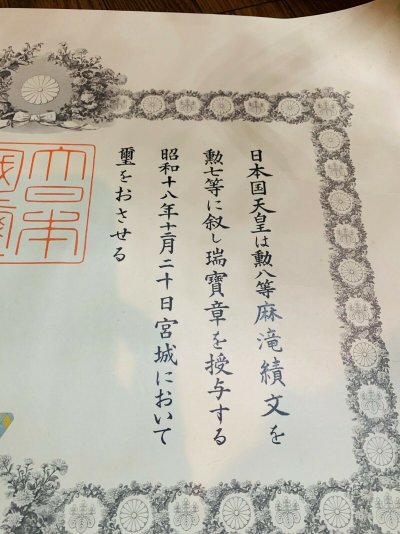 日本国天皇は勲八等麻滝績文を
勲七等に叙し瑞寶章を授与する
昭和十八年十二月二十日宮城において
璽をおさせる
大日本
國璽